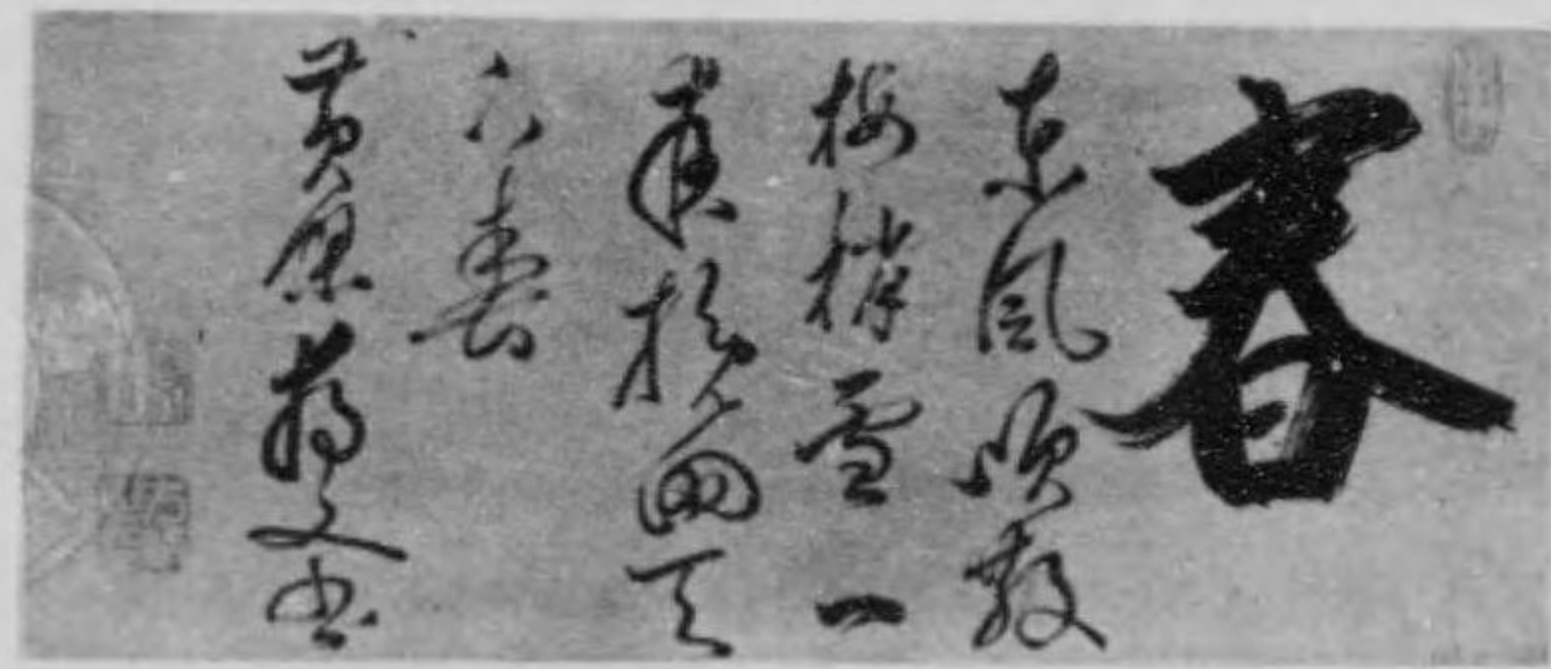 春
東風吹散
梅梢雪一
夜挽回天
下春
黃文書